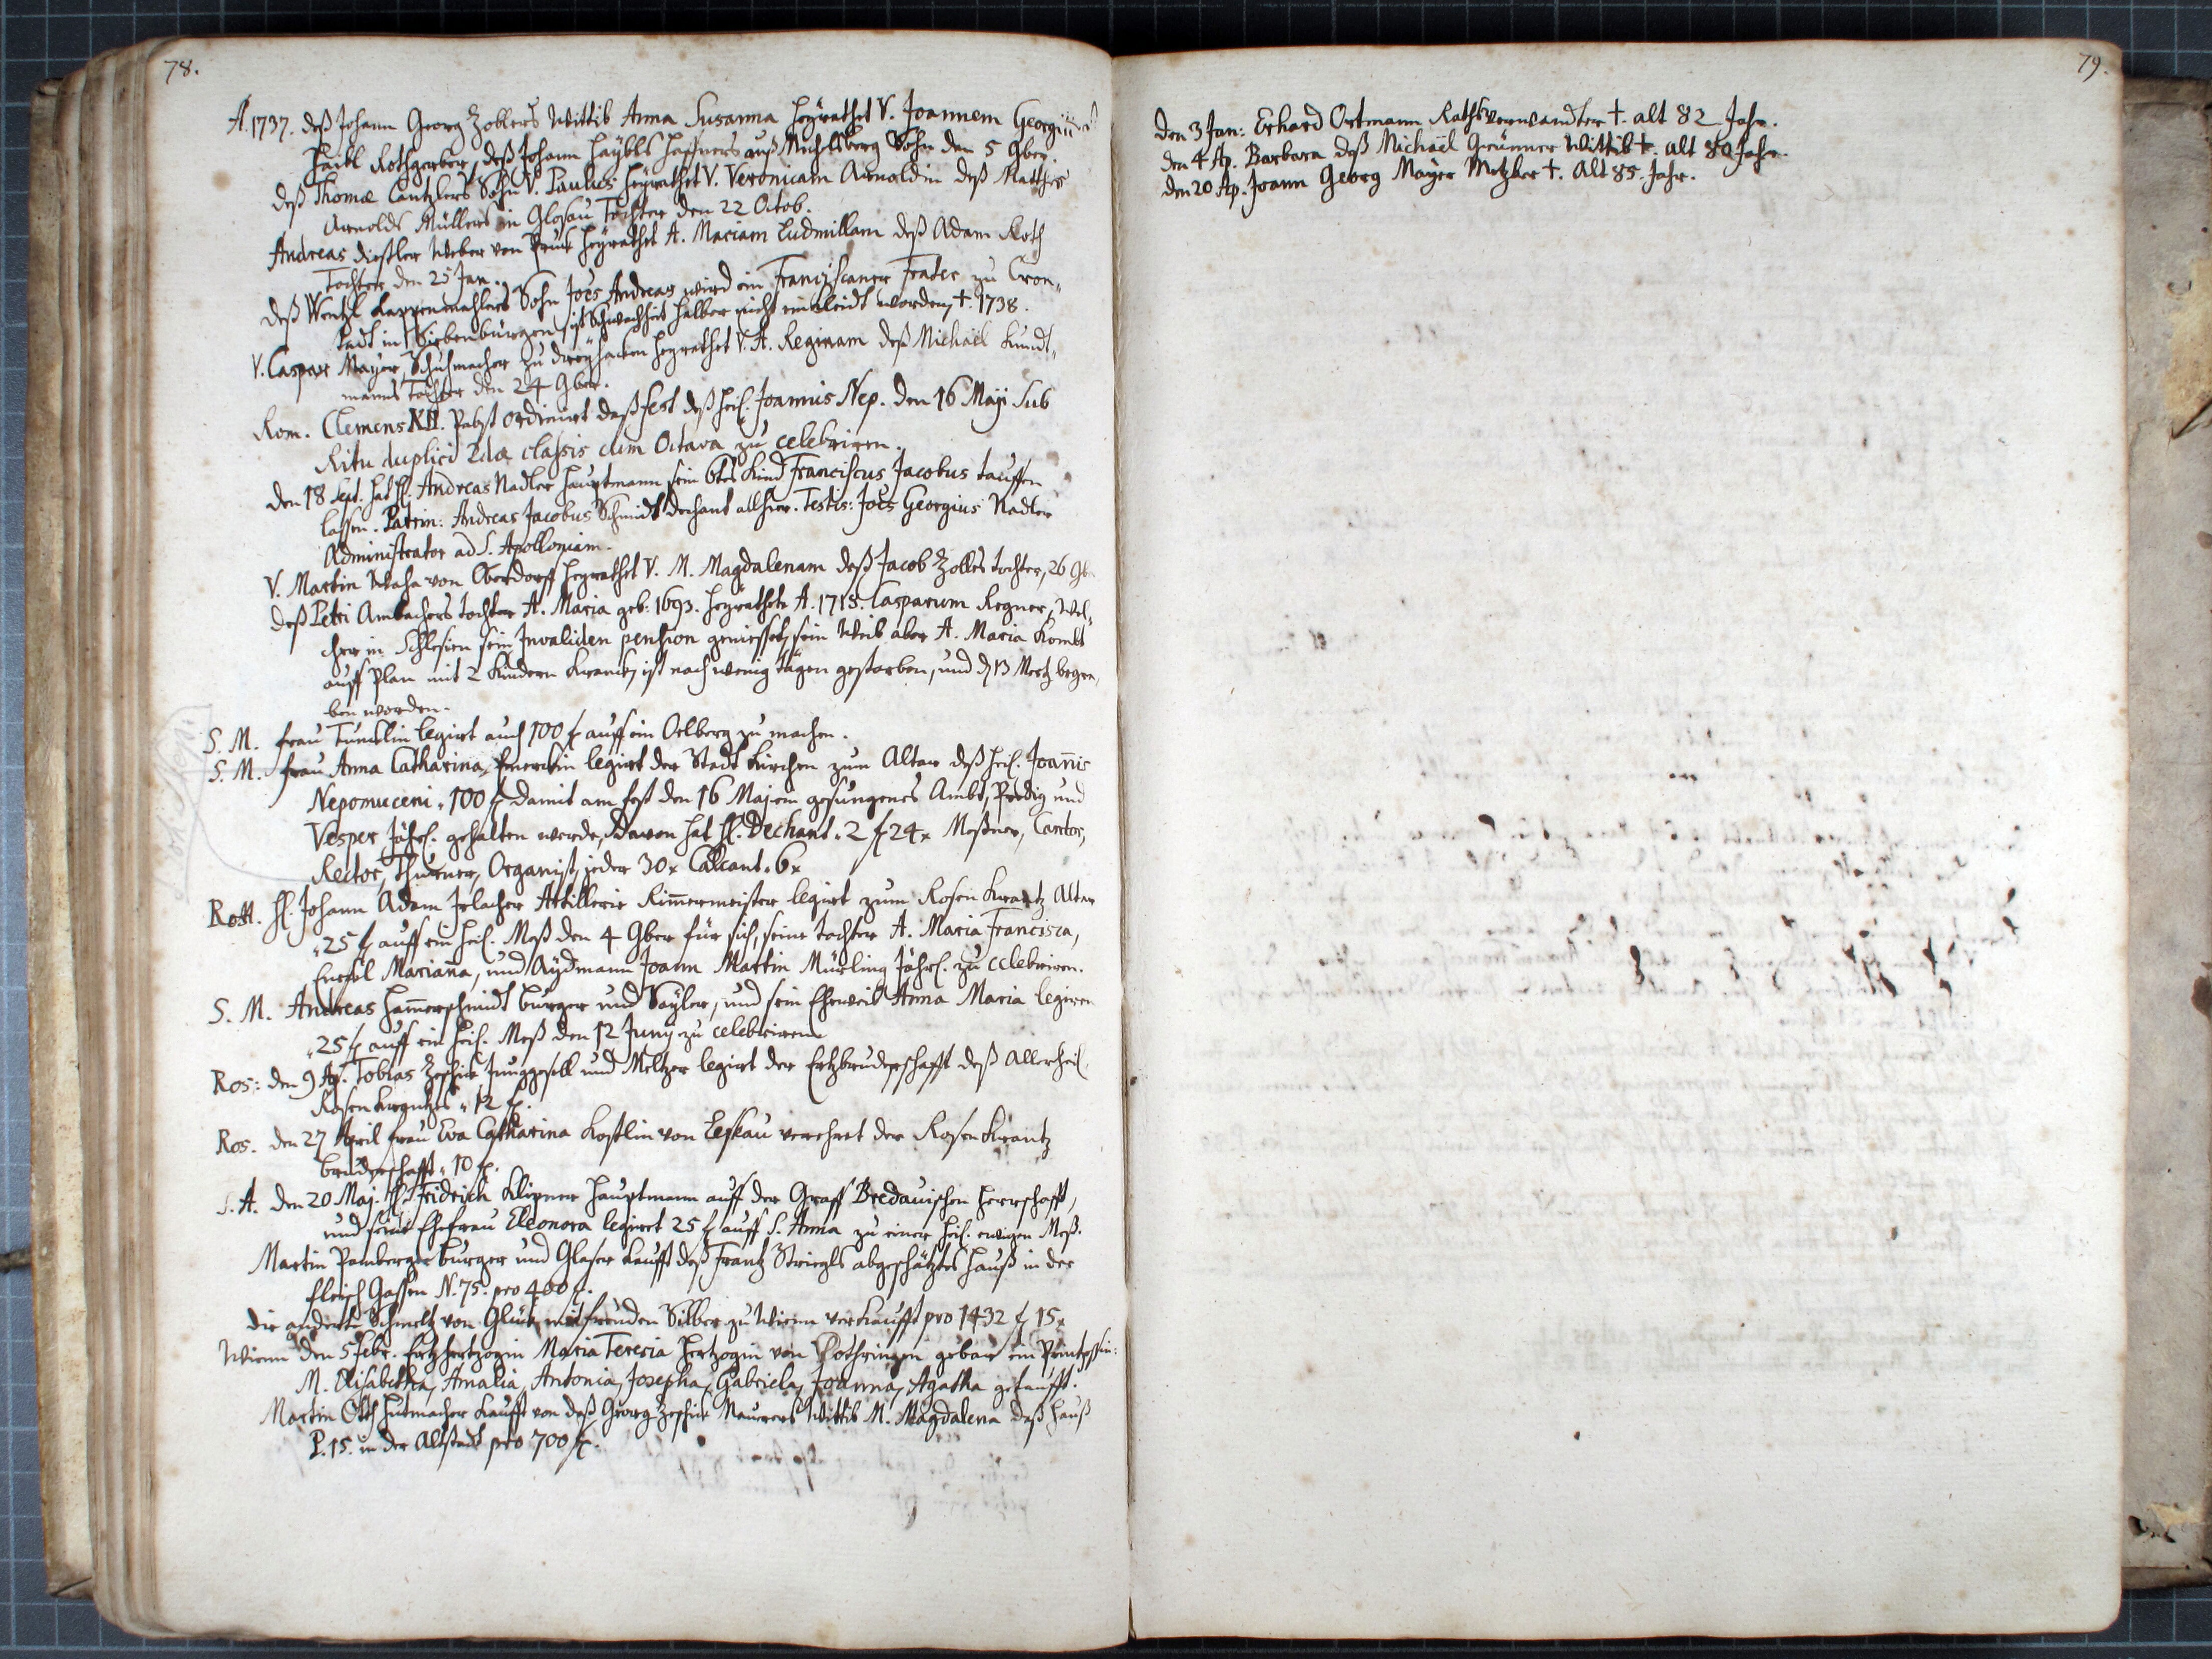 78.
A. 1737. deß Johann Georg Zoblers Wittib Anna Susanna heyrathet V. Joannem Georgium
Haibl Rothgerber, deß Johann Haybls Haffners auß Michlsberg Sohn den 5 9ber.
deß Thomæ Cantzlers Sohn V. Paulus heyrathet V. Veronicam Arnoldin deß Mathes
Arnolds Müllers in Glosau Tochter den 22 Octob.
Andreas Distler Weber von Pruk heyrathet A. Mariam Ludmillam deß Adam Roth
Tochter den 25 Jan.
deß Wentzl Kappenmahlers Sohn Jo͠es Andreas wird ein Franciscaner Frater zu Cron„
stadt in Siebenbürgen, ist Schwachheit halber nicht einkleidt worden, †. 1738.
V. Caspar Mayer, Schuhmacher zu Dreyhacken heyrathet V. A. Reginam deß Michaël Kundt„
manns Tochter den 24 9ber.
Rom. Clemens XII. Pabst ordinirt daß Fest deß heil. Joannis Nep. den 16 Maji sub
Ritu duplici 2dæ classis cum Octava zu celebriren.
den 18 Sept. hat H. Andreas Nadler Hauptmann sein 6tes Kind Franciscus Jacobus tauffen
lassen. Patrin: Andreas Jacobus Schmidt Dechant allhier. Testis: Jo͠es Georgius Nadler
Administrator ad S. Apolloniam.
V. Martin Waha von Oberdorff heyrathet V. M. Magdalenam deß Jacob Zolles Tochter, 26 9b
deß Petri Ambachers Tochter A. Maria geb: 1693. heyrathete A. 1715. Casparum Regner, wel„
cher in Schlesien sein Invaliden pension geniesset, sein Weib aber A. Maria kombt
auff Plan mit 2 Kindern kranck, ist nach wenig tägen gestorben, und d. 13 Mertz begra„
ben worden.
S. M. Frau Tuncklin legirt auch 100 f auff ein Oelberg zu machen.
S. M. Frau Anna Catharina legirt der Stadt Kirchen zum Altar deß heil. Joan̄is
Nepomuceni „ 100 f damit am Fest den 16 Maj ein gesungenes Ambt, Predig und
Vesper Jährl. gehalten werde, davon hat H. Dechant „ 2 f 24 x Meßner, Cantor,
Rector, Thurner, Organist, jeder 30 x Calcant „ 6 x
Ros. H. Johann Adam Irlacher Artillerie Rim̄ermeister legirt zum Rosen Krantz Altar
„ 25 f auff ein heil. Meß den 4 9ber für sich, seine Tochter A. Maria Francisca,
Enckel Marian̄a, und Aydmann Joann Martin Mürling Jährl. zu celebriren.
S. M. Andreas Ham̄erschmidt Burger und Sayler, und sein Eheweib Anna Maria legiren
„ 25 f auff ein heil. Meß den 12 Junij zu celebriren
Ros: den 9 Ap. Tobias Zeschick Junggesell und Meltzer legirt der Ertzbruderschafft deß Allerheil.
Rosen Krantzes „ 12 f.
Ros. den 27 April Frau Eva Catharina Kostlin von Leskau verehret der Rosen Krantz
bruderschafft „ 10 f.
S. A. den 20 Maj. H. Fridrich Klipner Hauptmann auff der Graff Bredauischen Herrschafft,
und seine Ehefrau Eleonora legirt 25 f auff S. Anna zu einer heil. ewigen Meß.
Martin Pamberger Burger und Glaser kaufft deß Frantz Striegls abgeschätztes Hauß in der
Fleisch Gassen N. 75. pro 400 f.
die anderte Schmeltz von Glück mit Freuden Silber zu Wienn verkaufft pro 1432 f 15 x
Wienn den 5 Febr. Ertzhertzogin Maria Teresia Hertzogin von Lothringen gebar ein Printzessin:
M. Elisabetha, Amalia, Antonia, Josepha, Gabriela, Joanna, Agatha getaufft.
Martin Oth Hutmacher kaufft von deß Georg Zeschick Maurers Wittib M. Magdalena daß Hauß
P. 15. in der Altstadt pro 700 f.
79.
den 3 Jan: Erhard Ortmann Rathsverwandter †. alt 82 Jahr.
den 4 Ap. Barbara deß Michaël Grünner Wittib †. alt 80 Jahr.
den 20 Ap. Joann Georg Mayer Metzker †. Alt 85. Jahr.